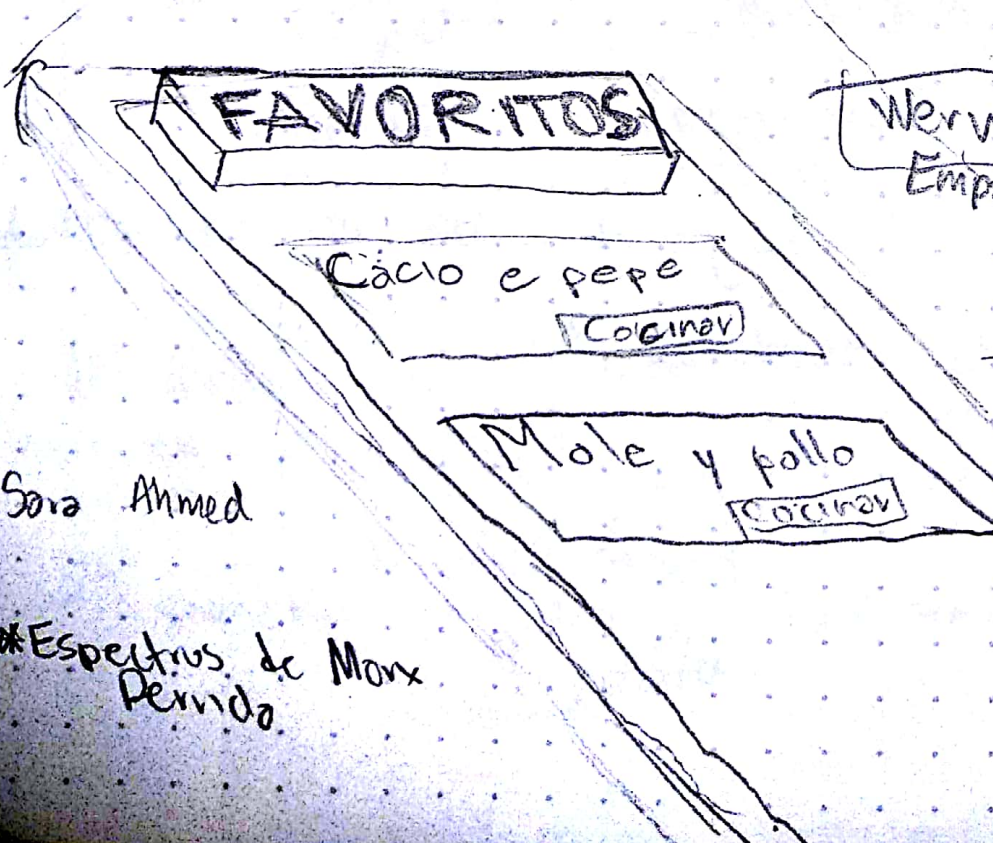 FAVORITOS
Cacio e pepe
Cocinar
Mole y pollo
Cocinar
Sara Ahmed
*Espectros de Marx
Derrida